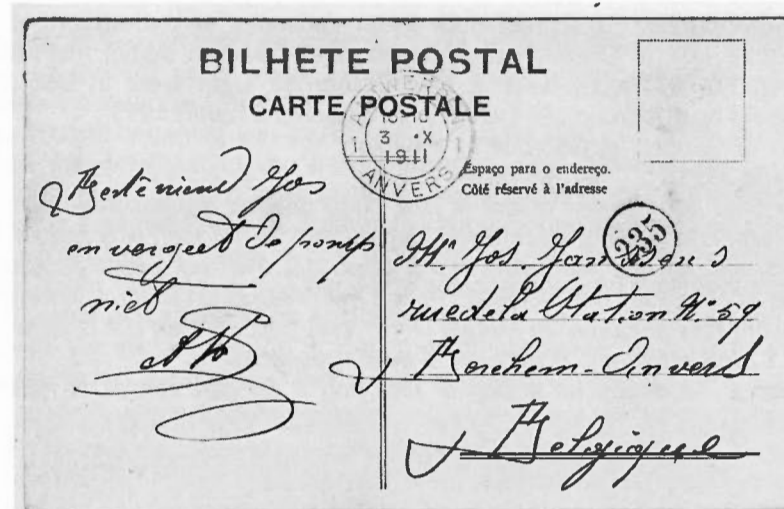 BILHETE POSTAL
CARTE POSTALE
3 X
1911
ANVERS
Espaço para o endereço.
Côté réservé à l'adresse
Beste vriend Jos
en vergeet de pomp
niet
235
Mr. Jos.
rue de la Station N° 59
Berchem-Anvers
Belgique